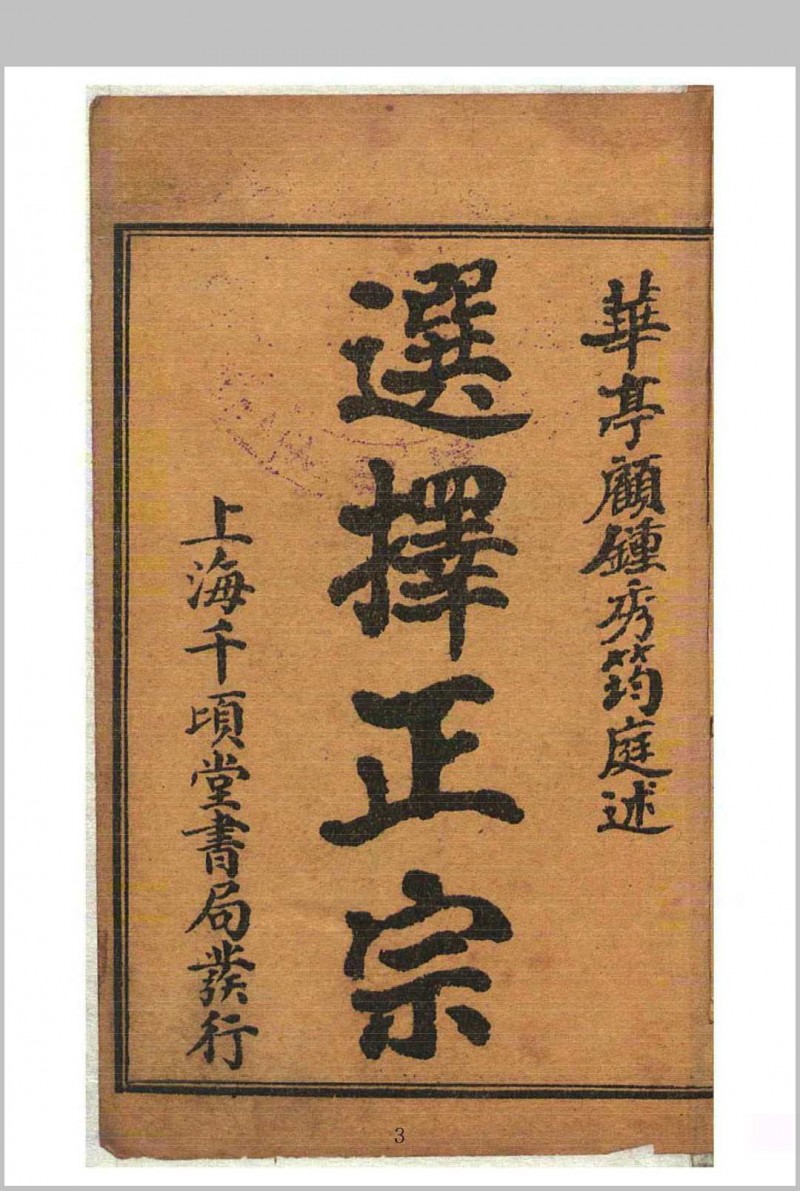 華亭顧鍾秀筠庭述
選擇正宗
上海千頃堂書局發行
3